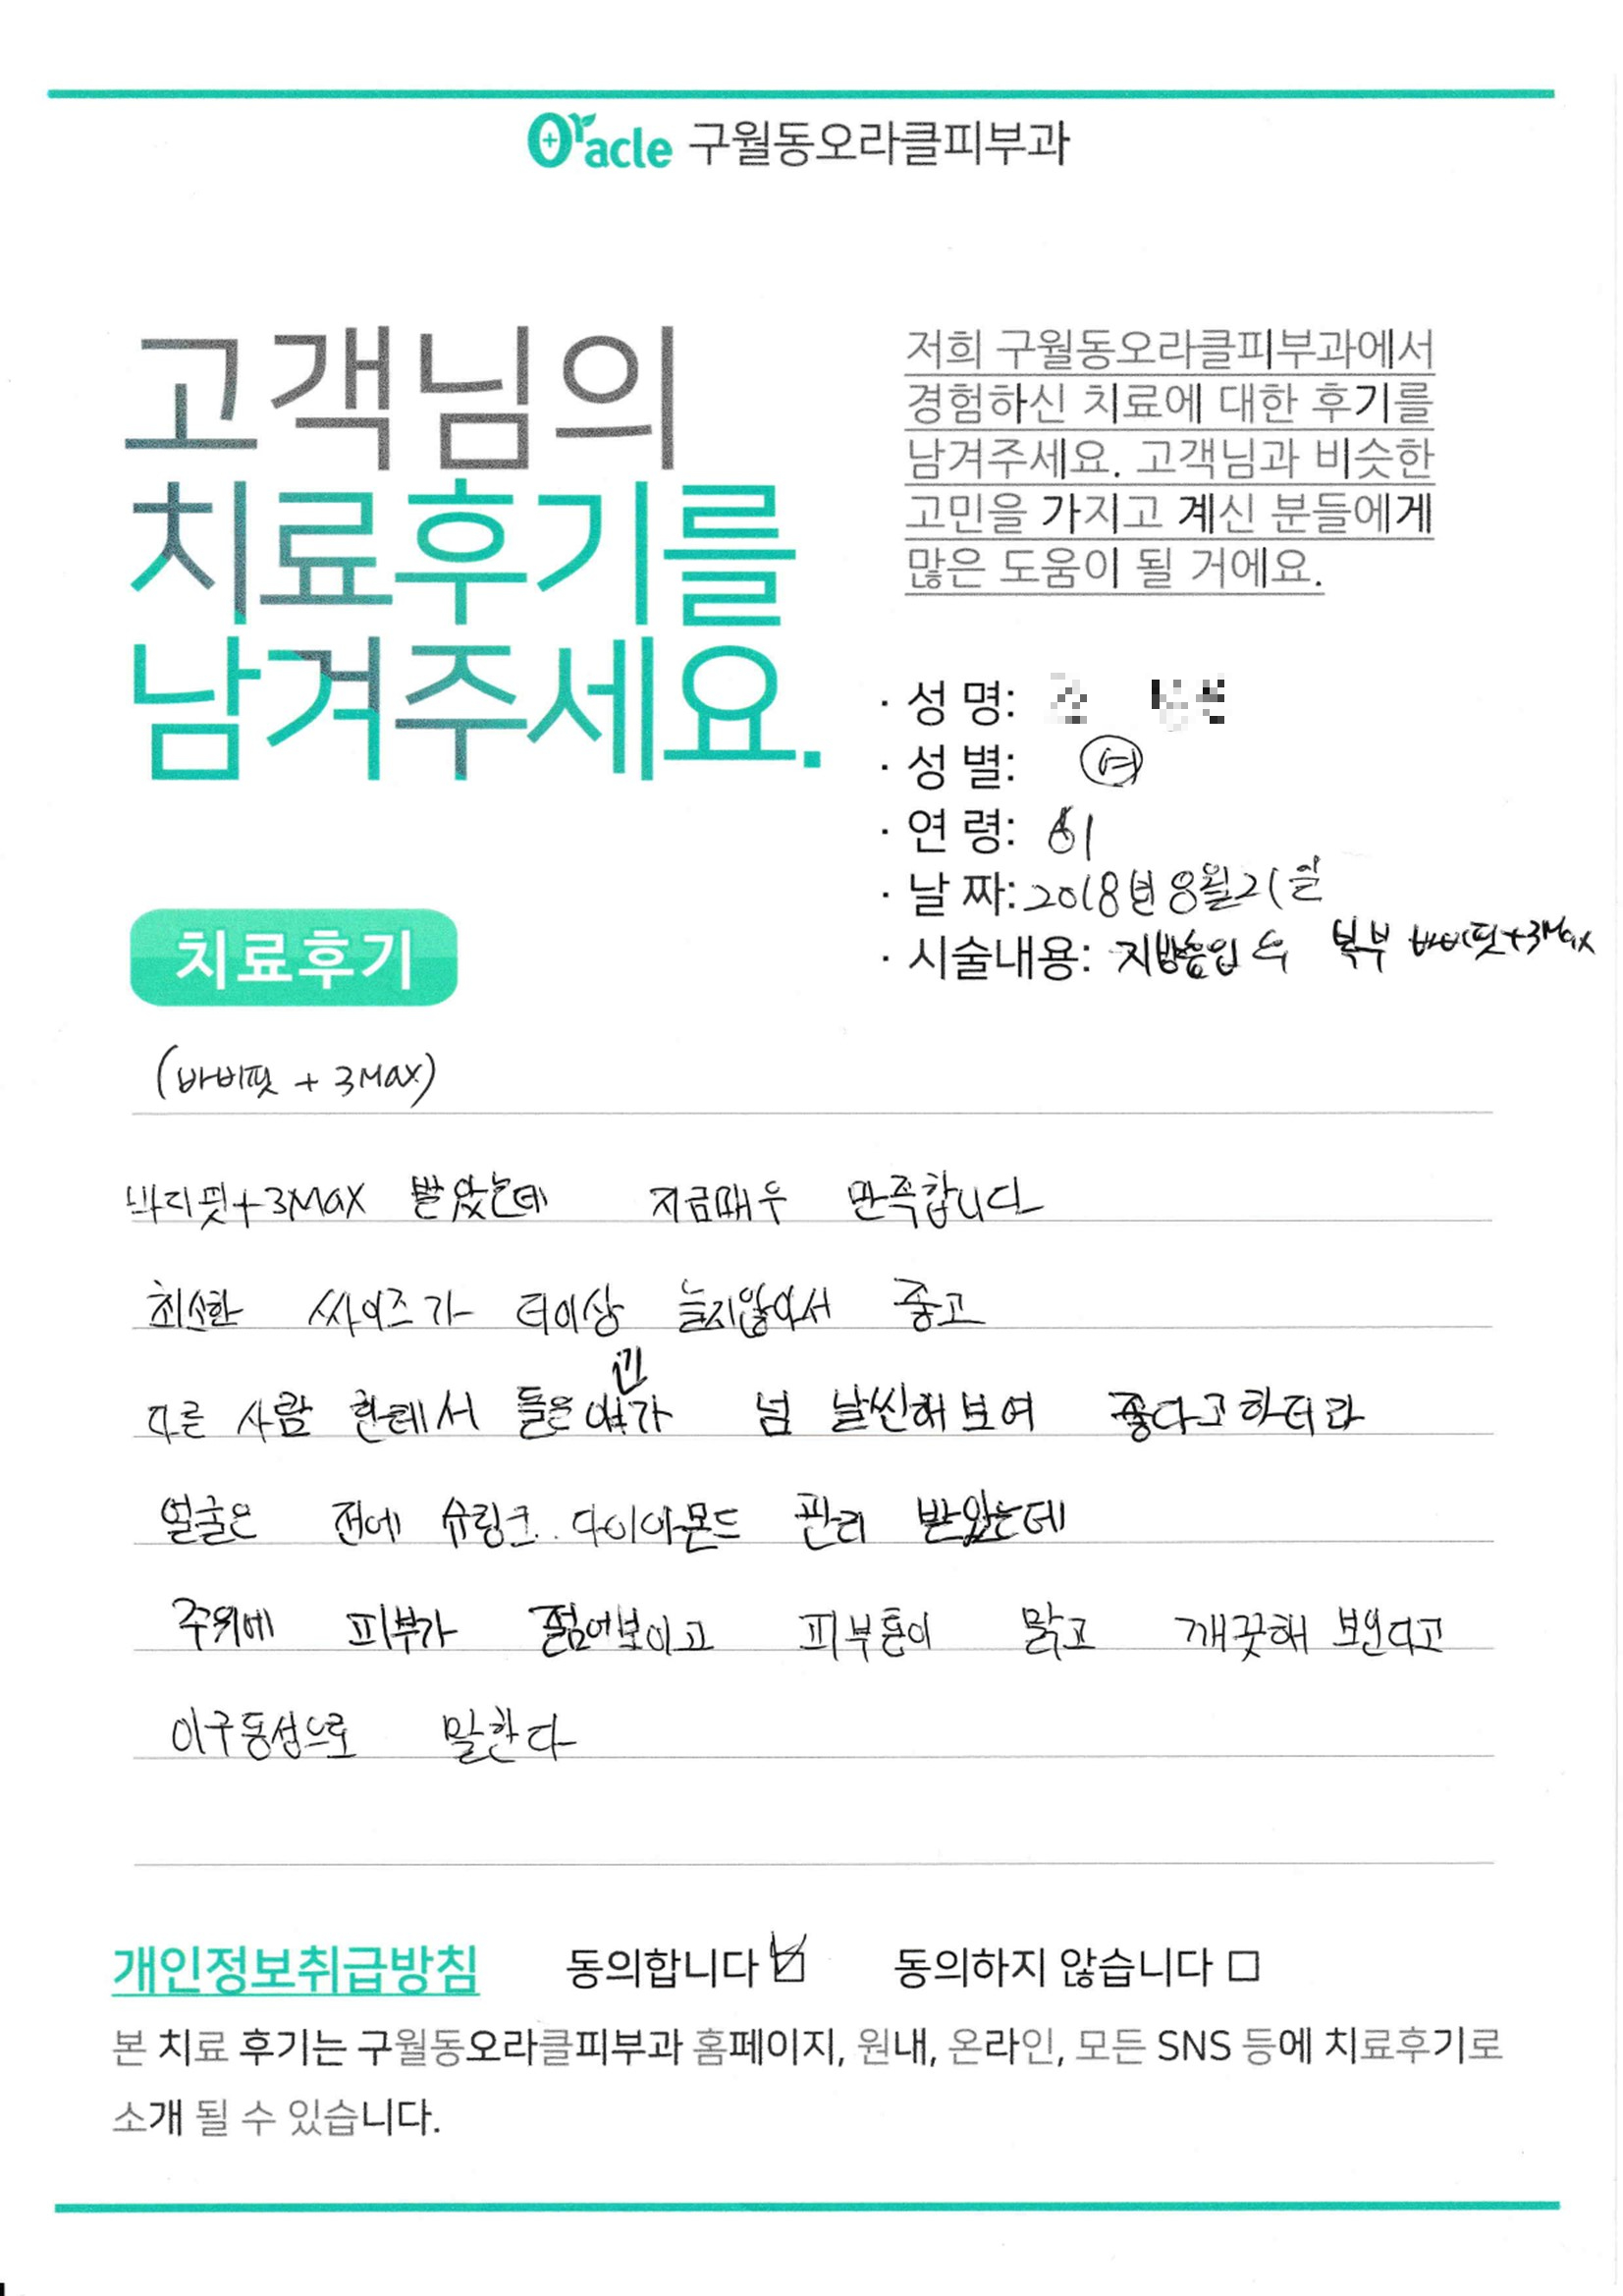 Oracle 구월동오라클피부과
고객님의
치료후기를
남겨주세요.
저희 구월동오라클피부과에서
경험하신 치료에 대한 후기를
남겨주세요. 고객님과 비슷한
고민을 가지고 계신 분들에게
많은 도움이 될 거에요.
· 성 명:
· 성 별: 여
· 연 령: 61
· 날 짜: 2018년 8월 21일
· 시술내용: 지방흡입 후 복부 바비핏+3Max
치료후기
(바비핏 + 3MAX)
바디핏+3MAX 받았는데 지금매우 만족합니다
최소한 싸이즈가 더이상 늘지않아서 좋고
다른 사람 한테서 들은 얘기가 넘 날씬해 보여 좋다고 하더라
얼굴은 전에 슈링크.. 다이아몬드 관리 받았는데
주위에 피부가 젊어보이고 피부톤이 맑고 깨끗해 보인다고
이구동성으로 말한다
개인정보취급방침 동의합니다 ☑ 동의하지 않습니다 □
본 치료 후기는 구월동오라클피부과 홈페이지, 원내, 온라인, 모든 SNS 등에 치료후기로
소개 될 수 있습니다.